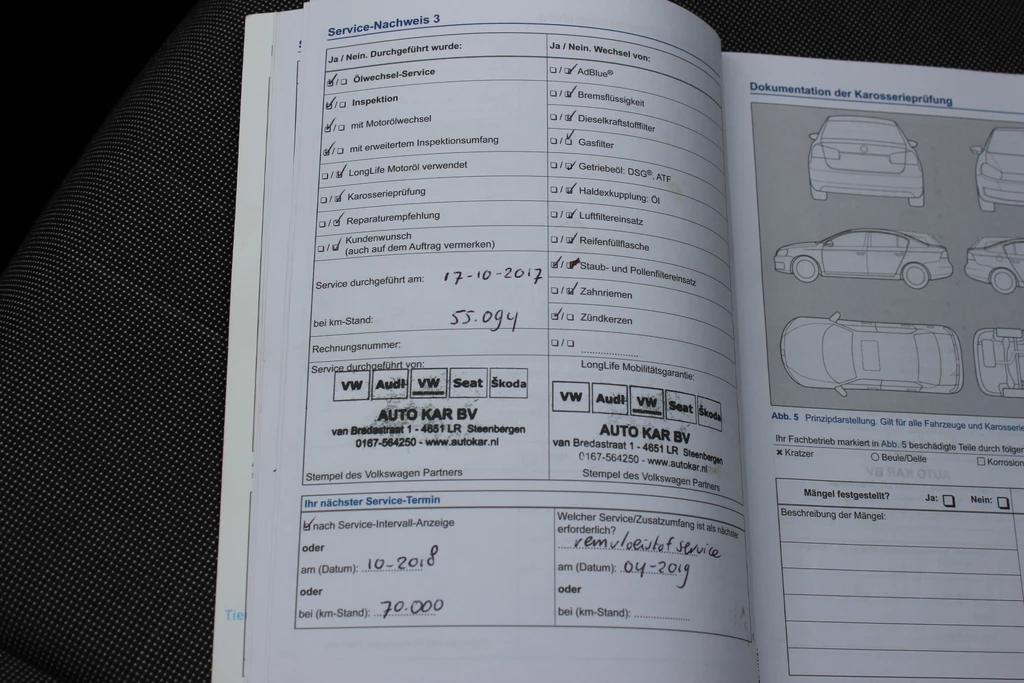 Service-Nachweis 3
Ja / Nein. Durchgeführt wurde:
Ölwechsel-Service
Inspektion
mit Motorölwechsel
mit erweitertem Inspektionsumfang
LongLife Motoröl verwendet
Karosserieprüfung
Reparaturempfehlung
Kundenwunsch
(auch auf dem Auftrag vermerken)
Service durchgeführt am: 17-10-2017
bei km-Stand: 55.094
Rechnungsnummer:
Service durchgeführt von:
VW Audi VW Seat Škoda
AUTO KAR BV
van Bredastraat 1 - 4651 LR Steenbergen
0167-564250 - www.autokar.nl
Stempel des Volkswagen Partners
Ja / Nein. Wechsel von:
AdBlue®
Bremsflüssigkeit
Dieselkraftstofffilter
Gasfilter
Getriebeöl: DSG®, ATF
Haldexkupplung: Öl
Luftfiltereinsatz
Reifenfüllflasche
Staub- und Pollenfiltereinsatz
Zahnriemen
Zündkerzen
LongLife Mobilitätsgarantie:
VW Audi VW Seat Škoda
AUTO KAR BV
van Bredastraat 1 - 4651 LR Steenbergen
0167-564250 - www.autokar.nl
Stempel des Volkswagen Partners
Ihr nächster Service-Termin
nach Service-Intervall-Anzeige
oder
am (Datum): 10-2018
oder
bei (km-Stand): 70.000
Welcher Service/Zusatzumfang ist als nächster
erforderlich?
remvloeistof service
am (Datum): 04-2019
oder
bei (km-Stand):
Tie
Dokumentation der Karosserieprüfung
Abb. 5 Prinzipdarstellung. Gilt für alle Fahrzeuge und Karosserie
Ihr Fachbetrieb markiert in Abb. 5 beschädigte Teile durch folge
Kratzer Beule/Delle Korrosion
Mängel festgestellt? Ja: Nein:
Beschreibung der Mängel: